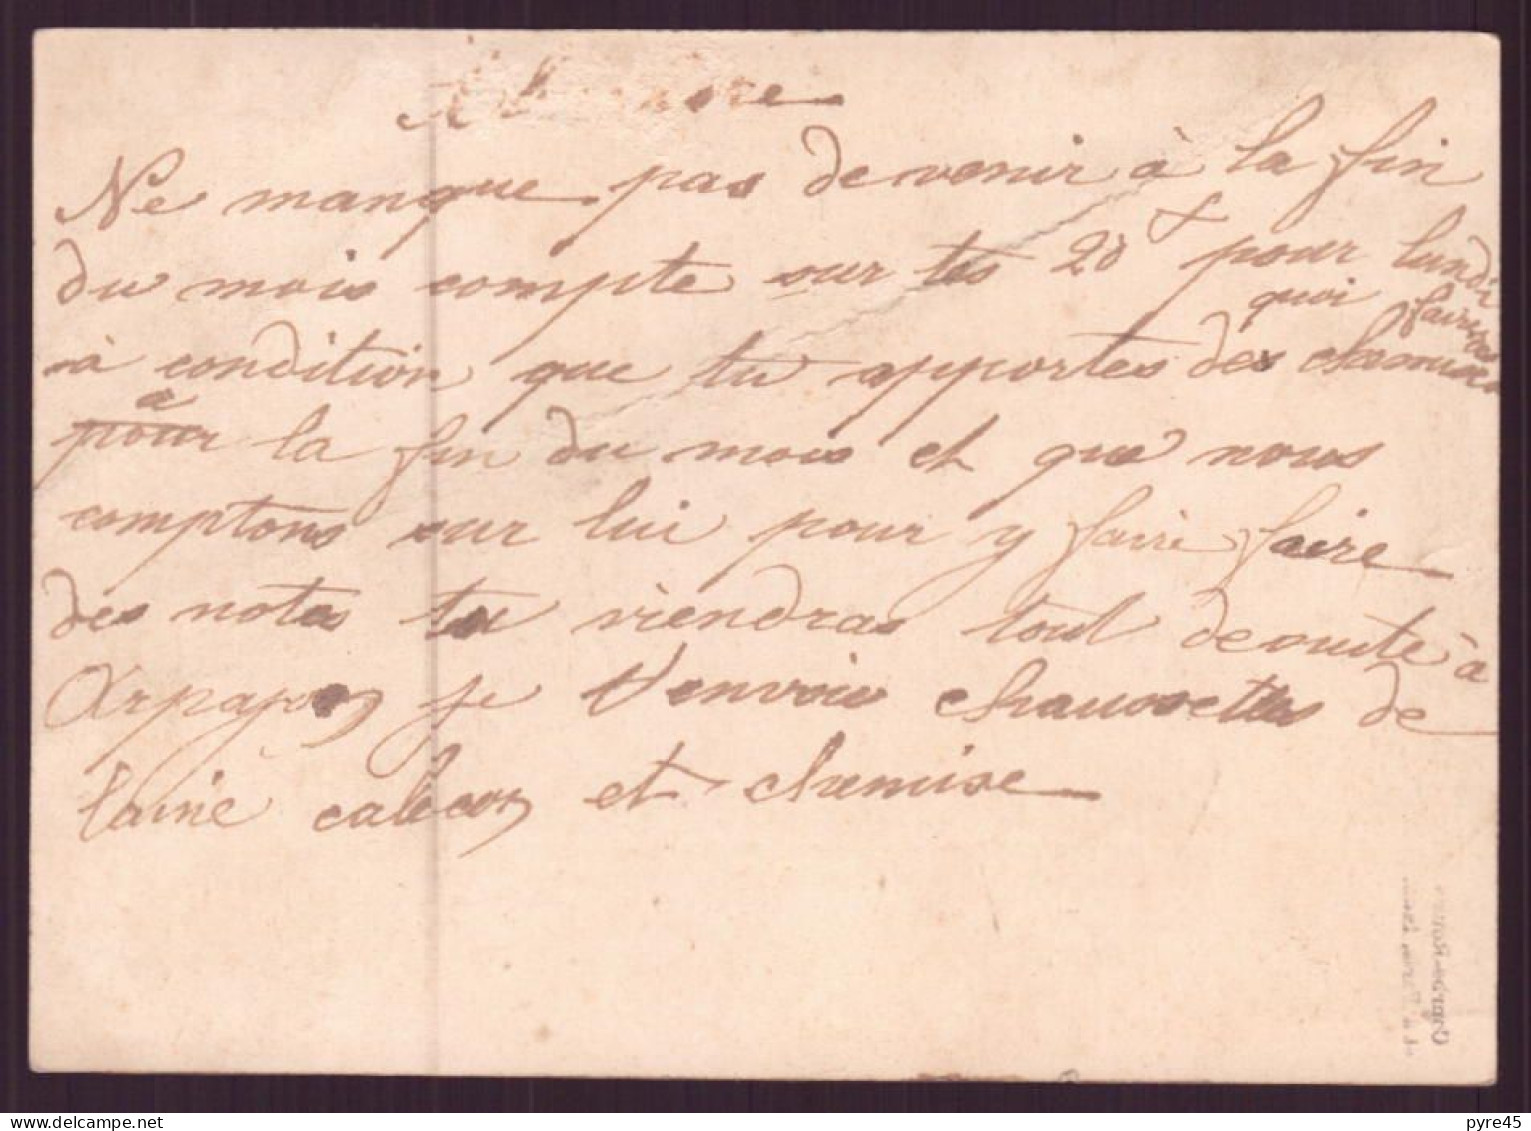 Ne manque pas de venir à la fin
du mois compte sur tes 20 f pour lundi
quoi faire des
à condition que tu apportes des chemises
à
pour la fin du mois et que nous
comptons sur lui pour y faire faire
des notes tu viendras tout de suite à
Arpajon je t'envoie chaussettes de
laine calecon et chemise
www.delcampe.net
pyre45